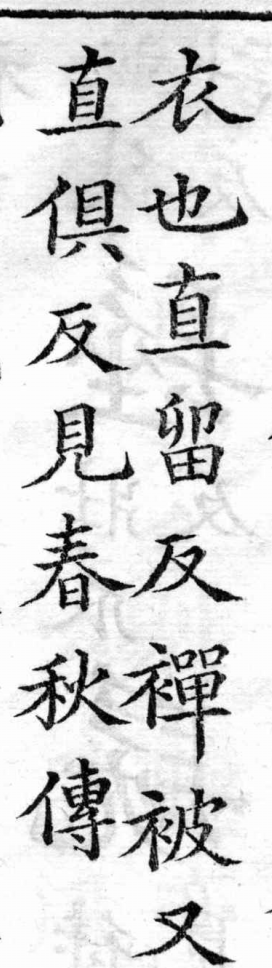 衣也直留反襌被又
直俱反見春秋傳